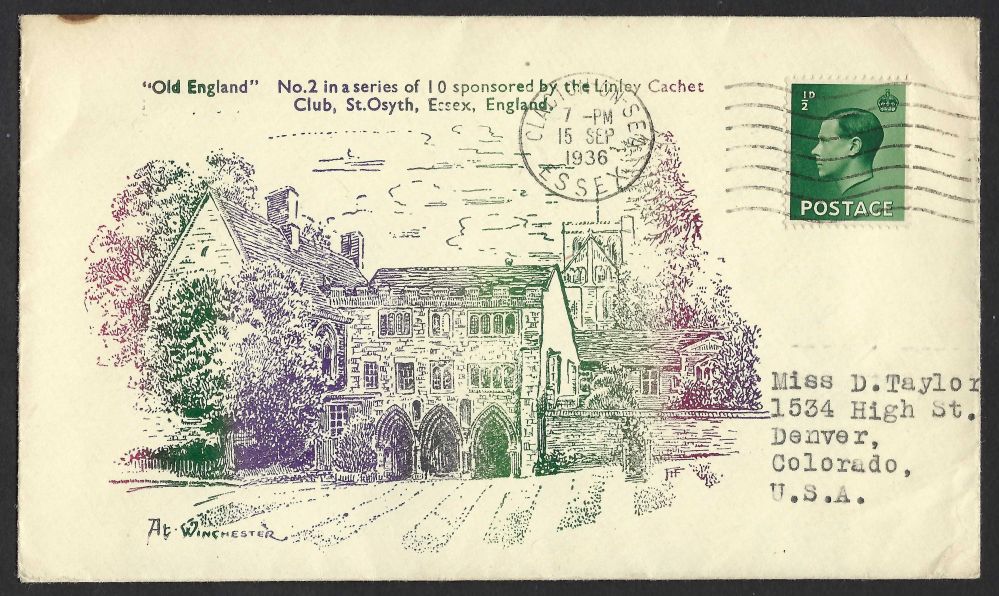 "Old England" No.2 in a series of 10 sponsored by the Linley Cachet
Club, St.Osyth, Essex, England.
CLACTON-ON-SEA
7 - PM
15 SEP
1936
ESSEX
½D
POSTAGE
Miss D.Taylor
1534 High St.
Denver,
Colorado,
U.S.A.
At WINCHESTER